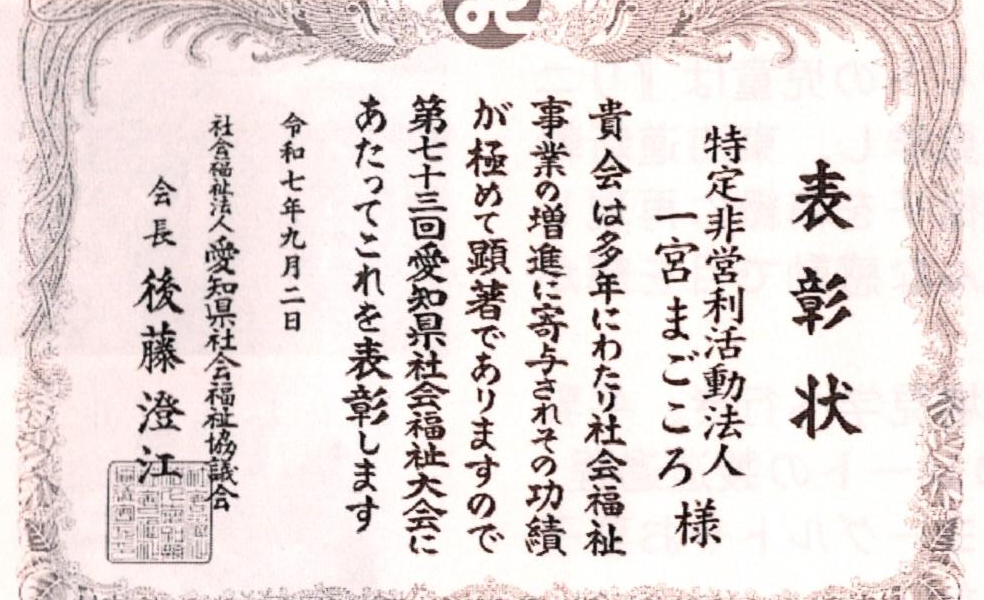 表彰状
特定非営利活動法人
一宮まごころ 様
貴会は多年にわたり社会福祉
事業の増進に寄与されその功績
が極めて顕著でありますので
第七十三回愛知県社会福祉大会に
あたってこれを表彰します
令和七年九月二日
社会福祉法人 愛知県社会福祉協議会
会長 後藤澄江